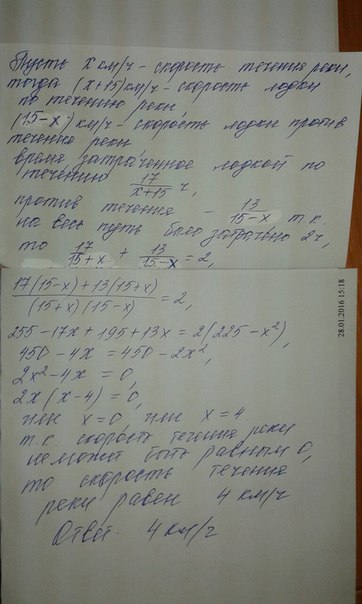 Пусть x км/ч - скорость течения реки,
тогда (x+15) км/ч - скорость лодки
по течению реки
(15-x) км/ч - скорость лодки против
течения реки
время затраченное лодкой по
течению 17/(x+15) ч,
против течения - 13/(15-x) т.к
на весь путь было затрачено 2ч,
то 17/(15+x) + 13/(15-x) = 2,
(17(15-x)+13(15+x))/((15+x)(15-x)) = 2,
255-17x+195+13x=2(225-x²),
450-4x=450-2x²,
2x²-4x=0,
2x(x-4)=0,
или x=0 или x=4
т.к скорость течение реки
не может быть равным 0,
то скорость течение
реки равен 4 км/ч
Ответ. 4 км/ч
28.01.2016 15:18